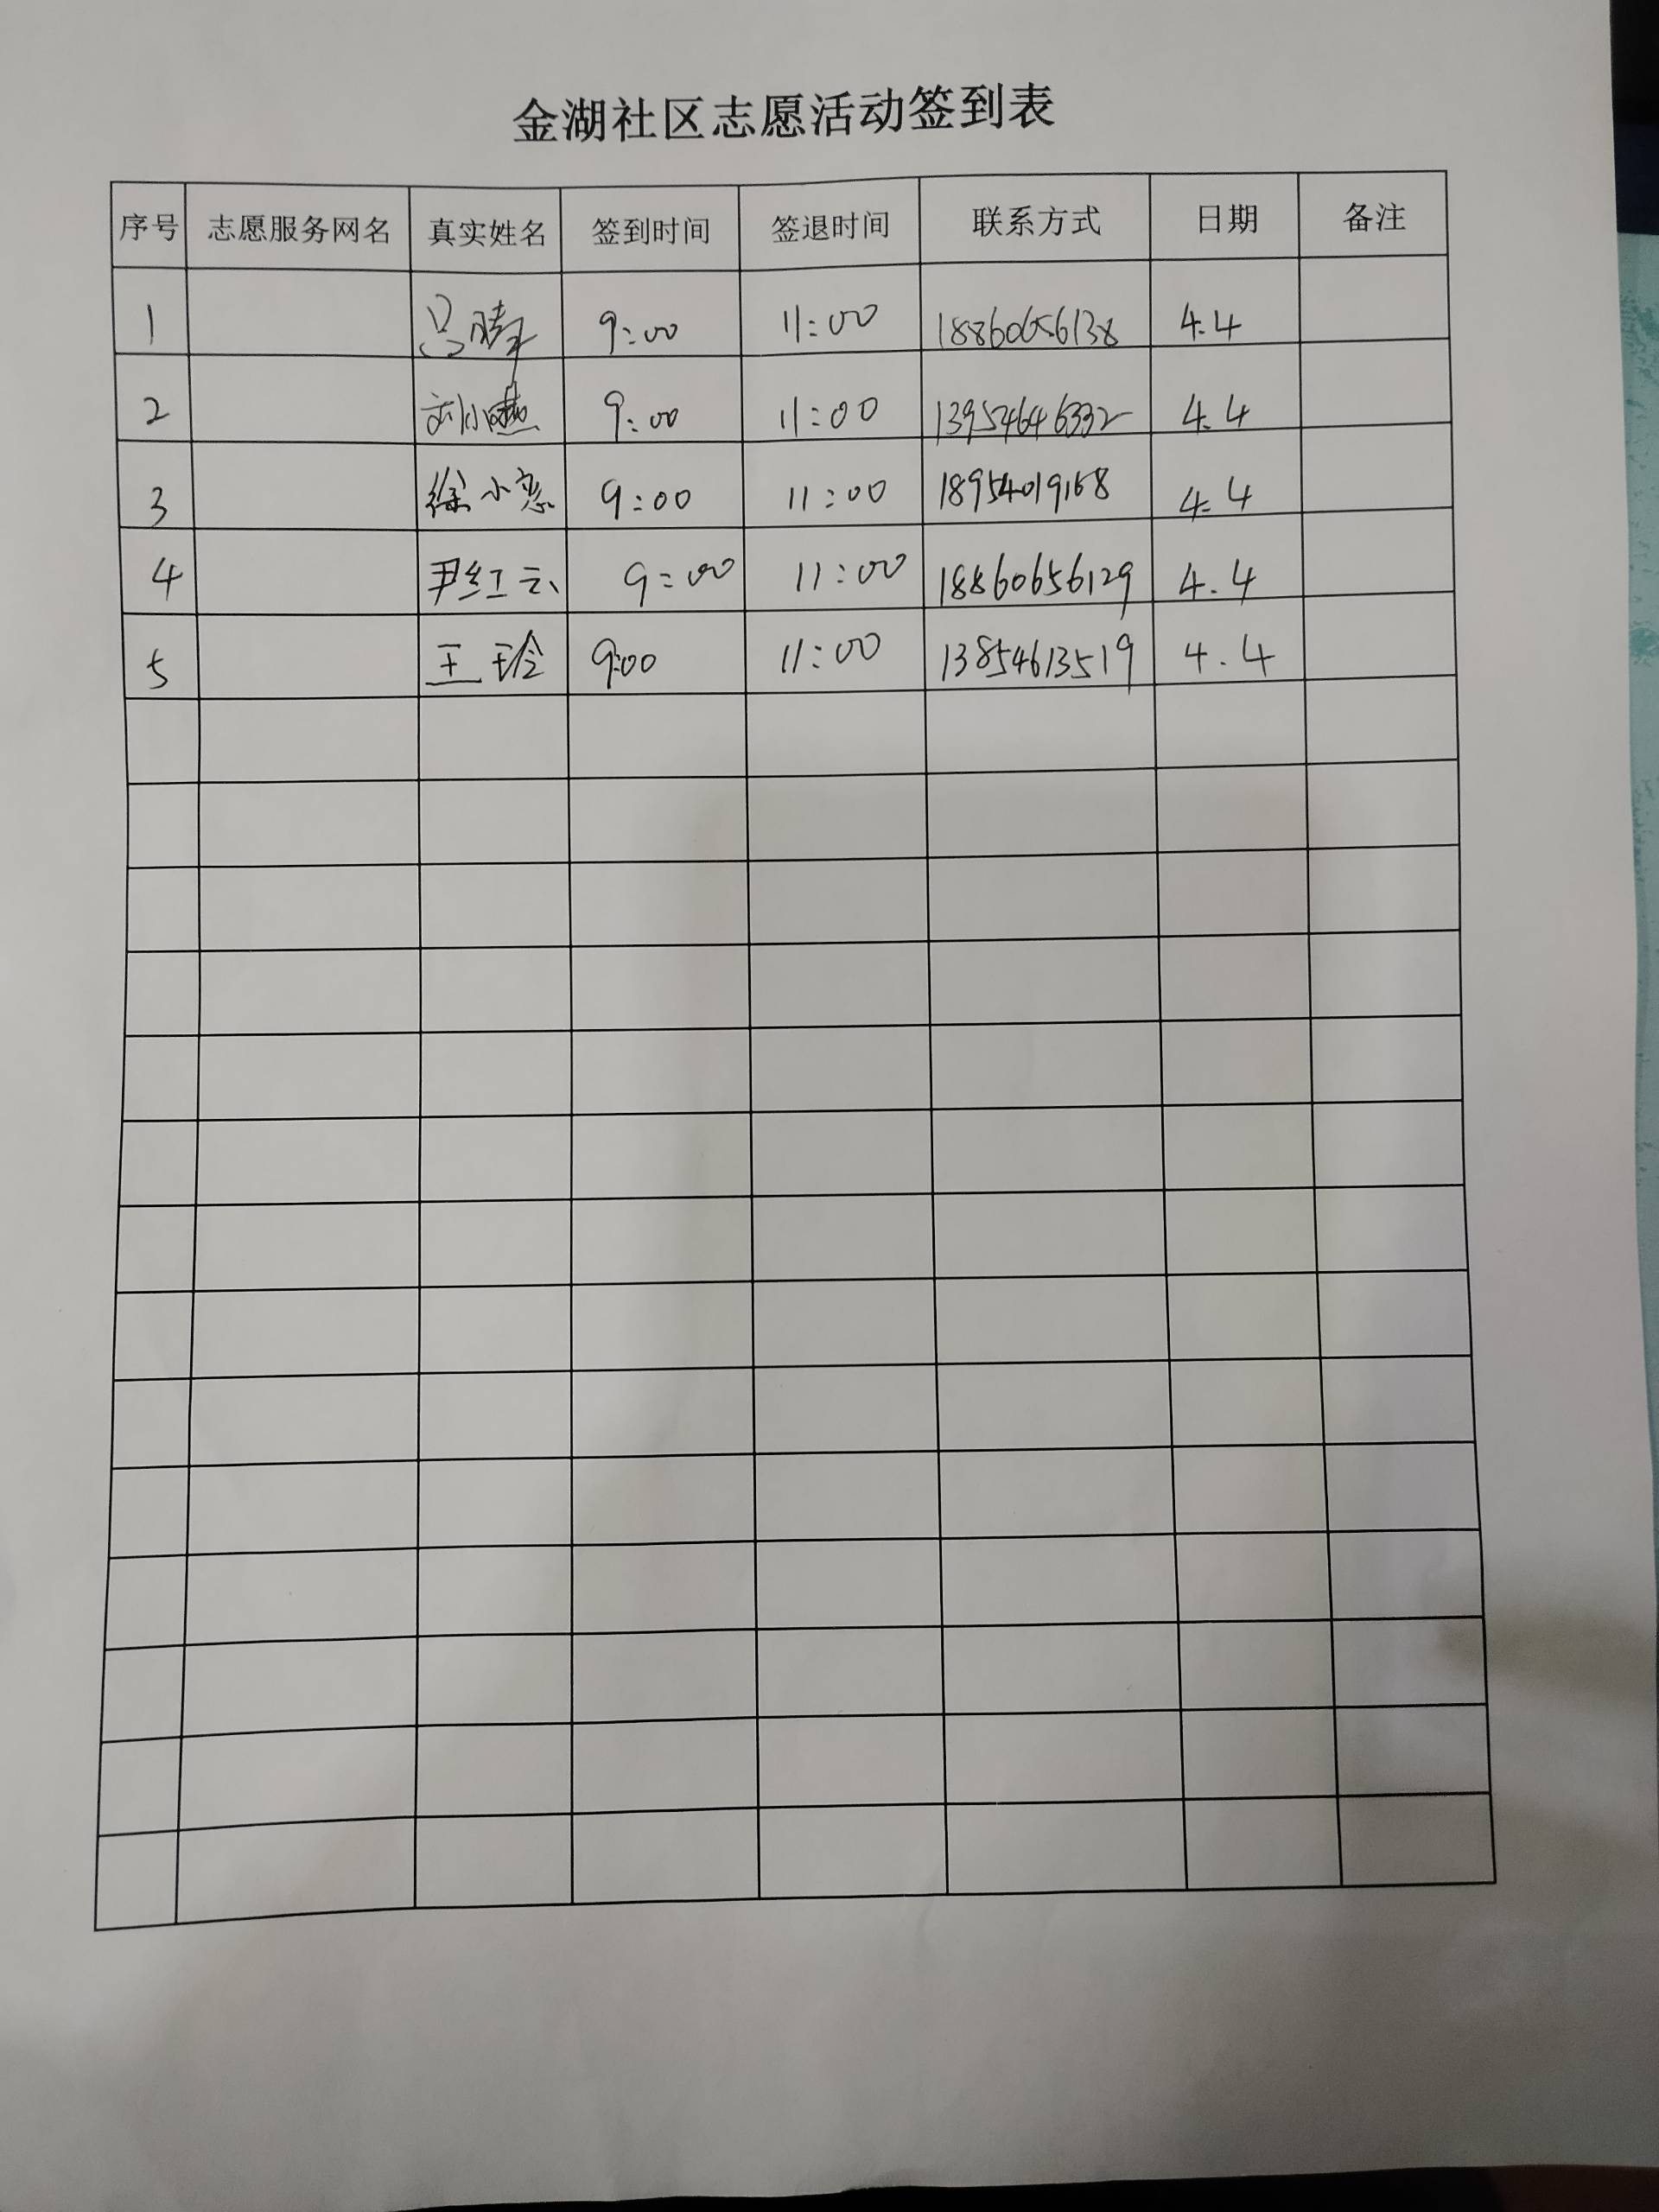 金湖社区志愿活动签到表
序号 志愿服务网名 真实姓名 签到时间 签退时间 联系方式 日期 备注
1 吕 9:00 11:00 18860656138 4.4
2 刘小燕 9:00 11:00 13954646332 4.4
3 徐小恋 9:00 11:00 18954019168 4.4
4 尹红云 9:00 11:00 18860656129 4.4
5 王玲 9:00 11:00 13854613519 4.4